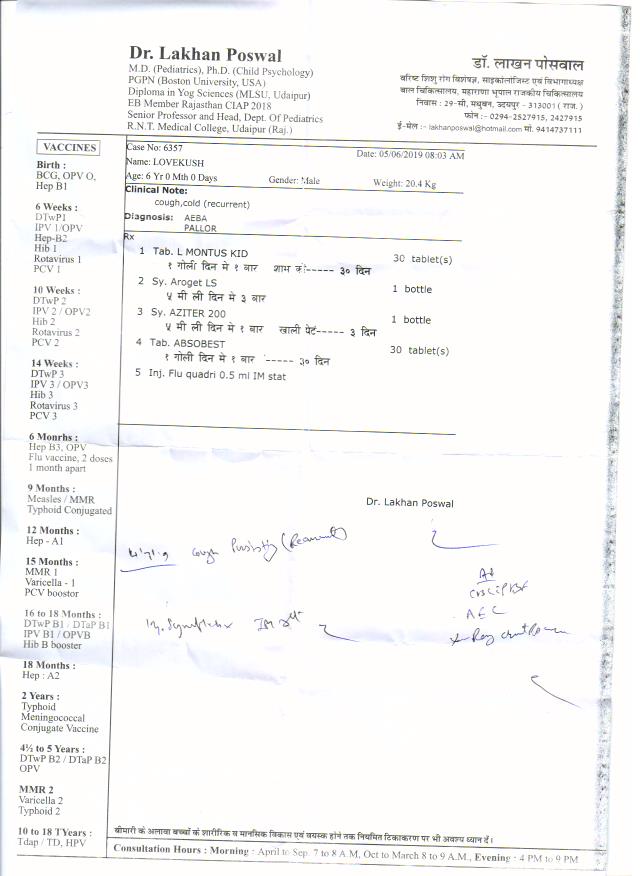 Dr. Lakhan Poswal
M.D. (Pediatrics), Ph.D. (Child Psychology)
PGPN (Boston University, USA)
Diploma in Yog Sciences (MLSU, Udaipur)
EB Member Rajasthan CIAP 2018
Senior Professor and Head, Dept. Of Pediatrics
R.N.T. Medical College, Udaipur (Raj.)
डॉ. लाखन पोसवाल
वरिष्ठ शिशु रोग विशेषज्ञ, साइकोलॉजिस्ट एवं विभागाध्यक्ष
बाल चिकित्सालय, महाराणा भूपाल राजकीय चिकित्सालय
निवास : 29-सी, मधुबन, उदयपुर - 313001 ( राज. )
फोन :- 0294-2527915, 2427915
ई-मेल :- lakhanposwal@hotmail.com मो. 9414737111
VACCINES
Birth :
BCG, OPV O,
Hep B1
6 Weeks :
DTwP1
IPV 1/OPV
Hep-B2
Hib 1
Rotavirus 1
PCV 1
10 Weeks :
DTwP 2
IPV 2 / OPV2
Hib 2
Rotavirus 2
PCV 2
14 Weeks :
DTwP 3
IPV 3 / OPV3
Hib 3
Rotavirus 3
PCV 3
6 Monrhs :
Hep B3, OPV
Flu vaccine, 2 doses
1 month apart
9 Months :
Measles / MMR
Typhoid Conjugated
12 Months :
Hep - A1
15 Months :
MMR 1
Varicella - 1
PCV boostor
16 to 18 Months :
DTwP B1 / DTaP B1
IPV B1 / OPVB
Hib B booster
18 Months :
Hep : A2
2 Years :
Typhoid
Meningococcal
Conjugate Vaccine
4½ to 5 Years :
DTwP B2 / DTaP B2
OPV
MMR 2
Varicella 2
Typhoid 2
10 to 18 TYears :
Tdap / TD, HPV
Case No: 6357
Date: 05/06/2019 08:03 AM
Name: LOVEKUSH
Age: 6 Yr 0 Mth 0 Days Gender: Male Weight: 20.4 Kg
Clinical Note:
cough,cold (recurrent)
Diagnosis: AEBA
PALLOR
Rx
1 Tab. L MONTUS KID 30 tablet(s)
१ गोली दिन मे १ बार शाम को----- ३० दिन
2 Sy. Aroget LS 1 bottle
५ मी ली दिन मे ३ बार
3 Sy. AZITER 200 1 bottle
५ मी ली दिन मे १ बार खाली पेट----- ३ दिन
4 Tab. ABSOBEST 30 tablet(s)
१ गोली दिन मे १ बार ----- ३० दिन
5 Inj. Flu quadri 0.5 ml IM stat
Dr. Lakhan Poswal
cough
IM
AEC
बीमारी के अलावा बच्चों के शारीरिक व मानसिक विकास एवं वयस्क होने तक नियमित टीकाकरण पर भी अवश्य ध्यान दें।
Consultation Hours : Morning : April to Sep. 7 to 8 A.M, Oct to March 8 to 9 A.M., Evening : 4 PM to 9 PM